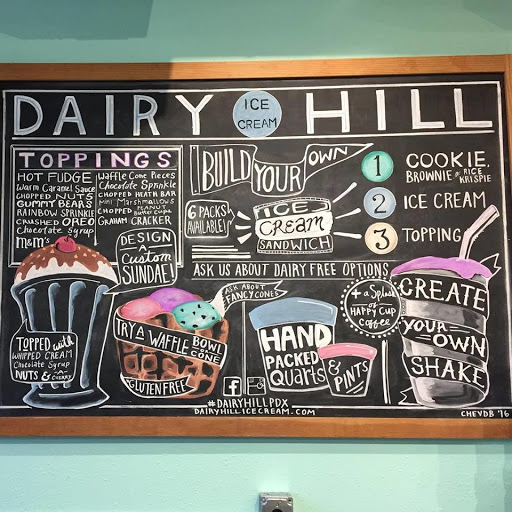 DAIRY ICE CREAM HILL
TOPPINGS
HOT FUDGE
Warm Caramel Sauce
CHOPPED NUTS
GUMMY BEARS
RAINBOW SPRINKLE
CRUSHED OREO
Chocolate Syrup
M&M's
Waffle Cone Pieces
Chocolate Sprinkle
CHOPPED HEATH BAR
Mini Marshmallows
CHOPPED PEANUT Butter Cups
GRAHAM CRACKER
DESIGN
A
Custom
SUNDAE!
BUILD
YOUR
OWN
6 PACKS
AVAILABLE!
ICE
CREAM
SANDWICH
1 COOKIE,
BROWNIE OR RICE KRISPIE
2 ICE CREAM
3 TOPPING
ASK US ABOUT DAIRY FREE OPTIONS
TOPPED with
WHIPPED CREAM
Chocolate Syrup
NUTS & A CHERRY
ASK ABOUT
FANCY CONES
TRY A WAFFLE BOWL
OR CONE
GLUTEN FREE
HAND
PACKED
Quarts
& PINTS
+ a Splash
OF
HAPPY CUP
COFFEE
CREATE
YOUR OWN
SHAKE
f
#DAIRYHILLPDX
DAIRYHILLICECREAM.COM
CHEVDB '16